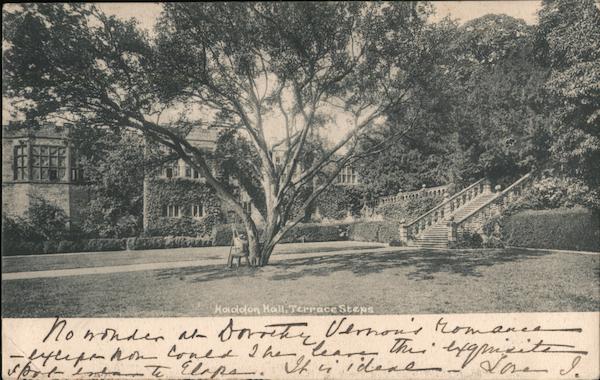 Haddon Hall, Terrace Steps
No wonder at Dorothy Vernon's romance
- except how could she leave this exquisite
spot even to Elope. It is ideal - Love J.